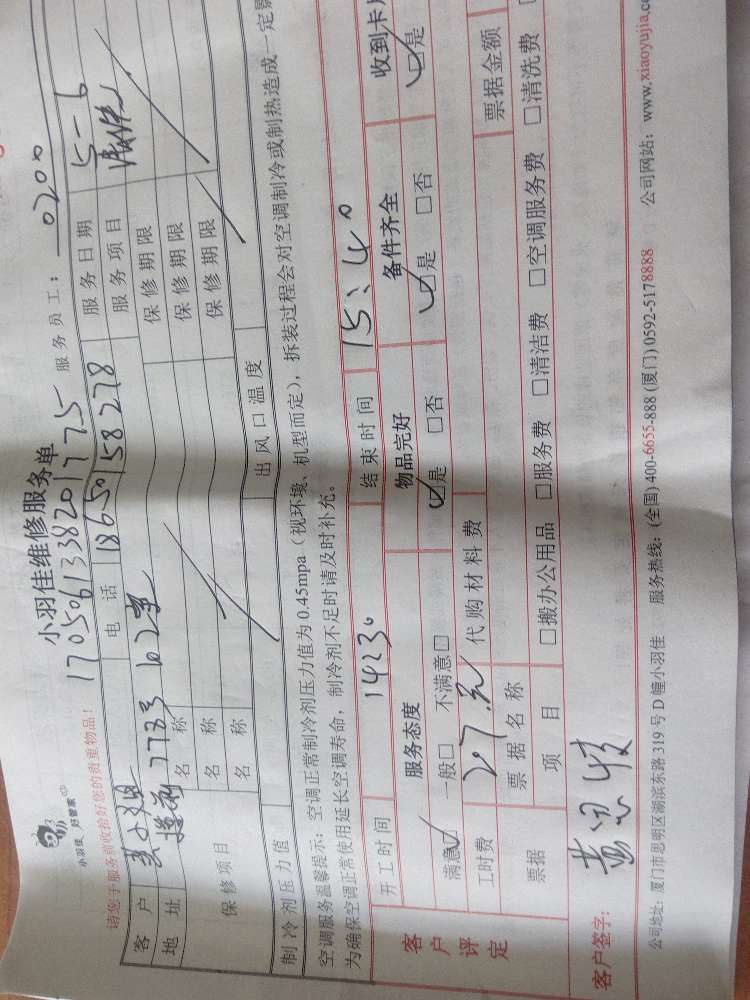 小羽佳 好管家
小羽佳维修服务单
请您于服务前收拾好您的贵重物品!
170506133820177 75 服务员工: 0200
客户 电话 18650158278 服务日期 5-6
地址 2778号 602室 服务项目
保修项目 名称 保修期限
名称 保修期限
名称 保修期限
制冷剂压力值 出风口温度
空调服务温馨提示:空调正常制冷剂压力值为0.45mpa(视环境、机型而定),拆装过程会对空调制冷或制热造成一定影
为确保空调正常使用延长空调寿命,制冷剂不足时请及时补充。
客户评定 开工时间 14:30 结束时间 15:40
服务态度 物品完好 备件齐全 收到卡片
满意☑ 一般□ 不满意□ ☑是 □否 ☑是 □否 ☑是
工时费 207.元 代购材料费
票据 票据名称 票据金额
项目 □搬办公用品 □服务费 □清洁费 □空调服务费 □清洗费
客户签字:
公司地址:厦门市思明区湖滨东路319号D幢小羽佳 服务热线:(全国)400-6655-888 (厦门)0592-5178888 公司网站:www.xiaoyujia.co